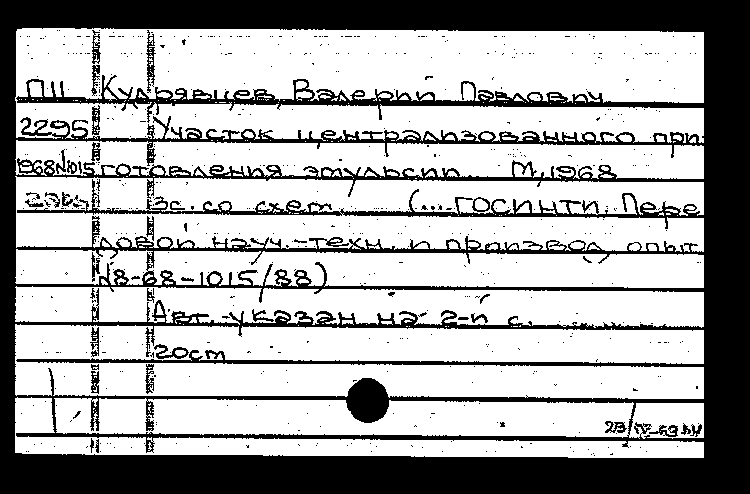 П11 Кудрявцев, Валерий Павлович
2295 Участок централизованного при-
1968№1015 готовления эмульсии. М, 1968
3с. со схем. (...ГОСИНТИ. Пере
довой науч.-техн. и производ. опыт
№8-68-1015/88)
Авт. указан на 2-й с.
20см
23/IV-69